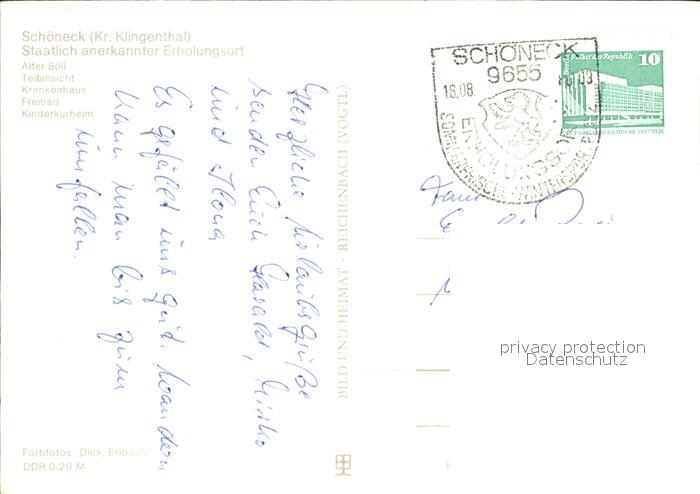 Schöneck (Kr. Klingenthal)
Staatlich anerkannter Erholungsort
Alter Söll
Teilansicht
Krankenhaus
Freibad
Kinderkurheim
Herzliche Urlaubsgrüße
senden Euch Harald, Mirko
und Ilona
Es gefällt uns gut. Wandern
kann man bis zum
umfallen.
BILD UND HEIMAT · REICHENBACH (VOGTL)
SCHÖNECK
9655
16.08.
ERHOLUNGSORT
10
Fam
privacy protection
Datenschutz
Farbfotos: Dick, Erlbach
DDR 0,20 M